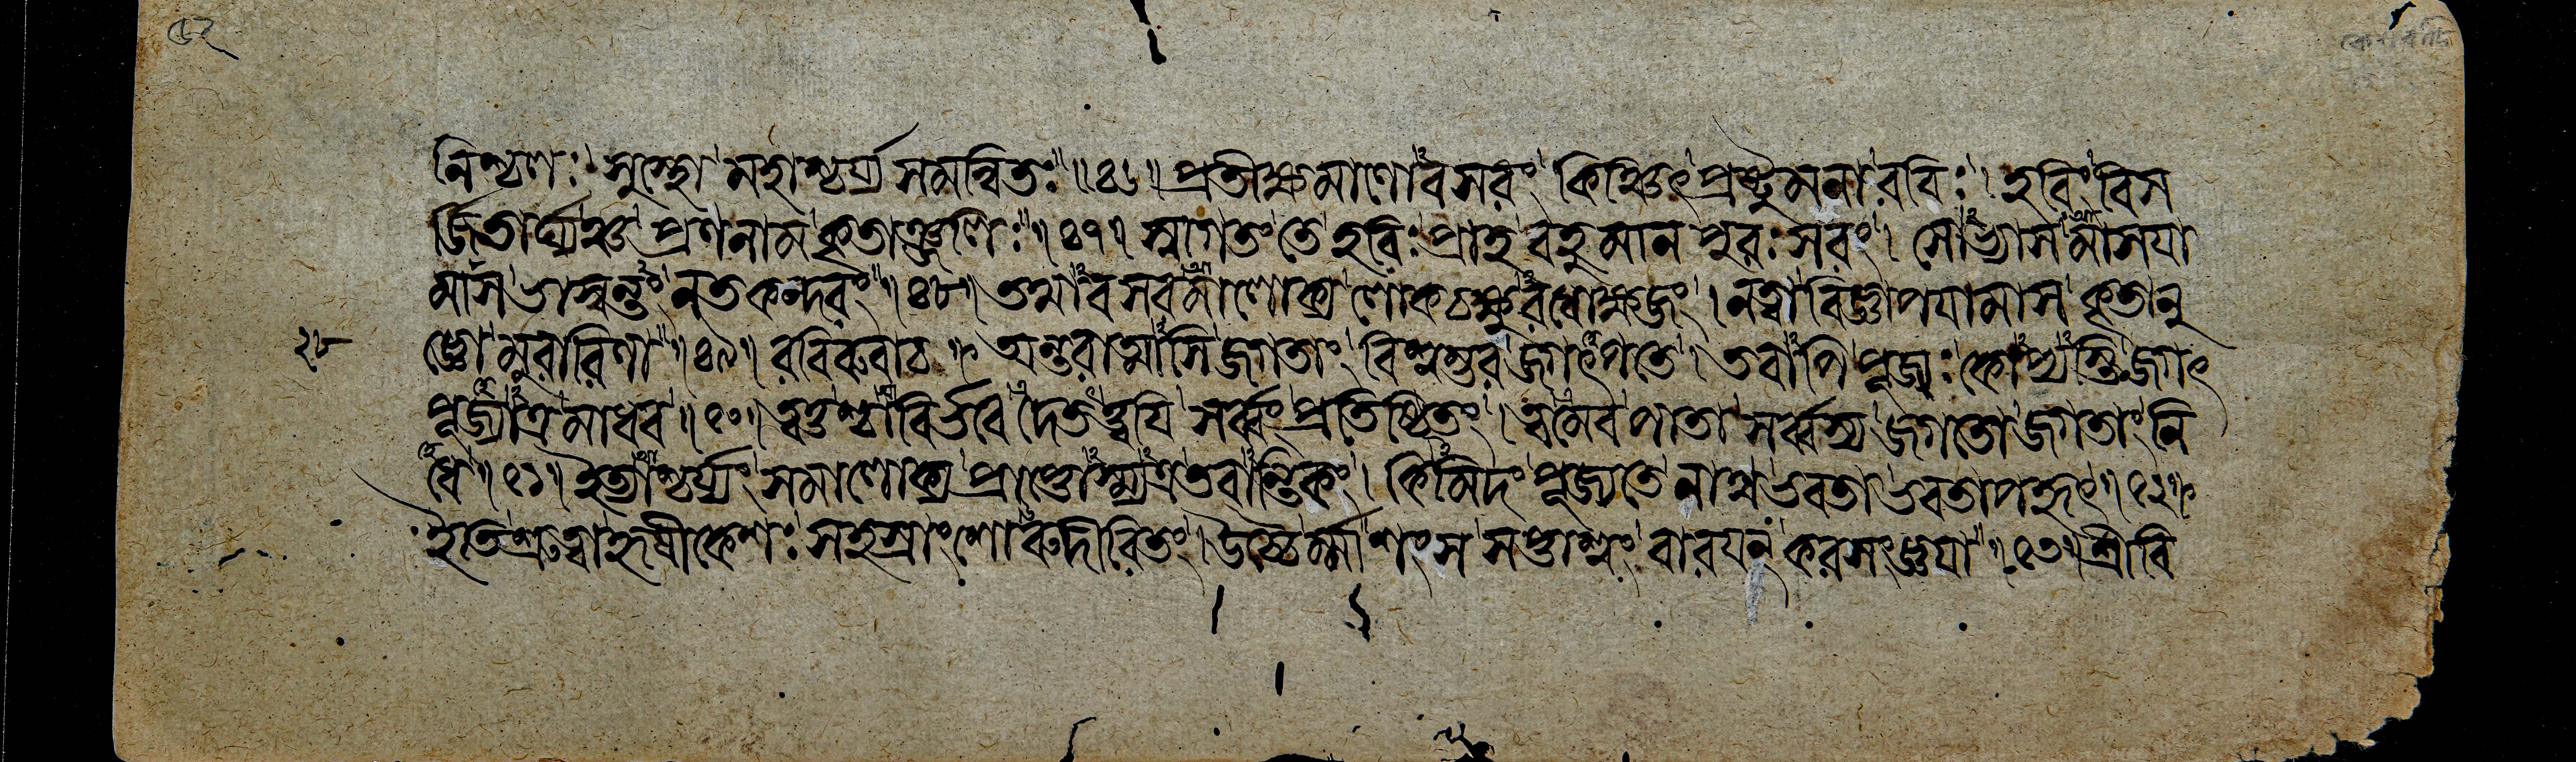 নিশ্চলঃ সুস্থো মহাশ্চর্য্যসমন্বিতঃ ॥৪৬॥ প্রতীক্ষমাণোবসরং কিঞ্চিৎ প্রষ্টুমনা রবিঃ । হরিং বিস
র্জিতার্ঘ্যঞ্চ প্রণনাম কৃতাঞ্জলিঃ ॥৪৭॥ স্বাগতং তে হরিঃ প্রাহ বহুমানপুরঃসরং । সোভ্যাসমাসযা
মাস ভাস্বন্তং নতকন্দরং ॥৪৮॥ তমাবসরমালোক্য লোকচক্ষুরধোক্ষজং । নত্বা বিজ্ঞাপযামাস কৃতানু
জ্ঞো মুরারিণা ॥৪৯॥ রবিরুবাচ ॥ অন্তরাত্মাসি জগতাং বিশ্বম্ভর জগৎপতে । তবাপি পূজ্যঃ কোপ্যস্তি জগৎ
পূজ্যাত্র মাধব ॥৫০॥ ত্বত্তশ্চাবির্ভবেদেতত্ত্বযি সর্ব্বং প্রতিষ্ঠিতং । ত্বমেব পাতা সর্ব্বস্য জগতো জগতাং নি
ধে ॥৫১॥ ইত্যাশ্চর্য্যং সমালোক্য প্রাপ্তোস্ম্যত্র তবান্তিকং । কিমিদং পূজ্যতে নাথ ভবতা ভবতাপহৃৎ ॥৫২॥
ইতি শ্রুত্বা হৃষীকেশঃ সহস্রাংশোরুদীরিতং । উচ্চৈর্ম্মাশংস সপ্তাশ্বং বারযন্ করসংজ্ঞযা ॥৫৩॥ শ্রীবি
২৮